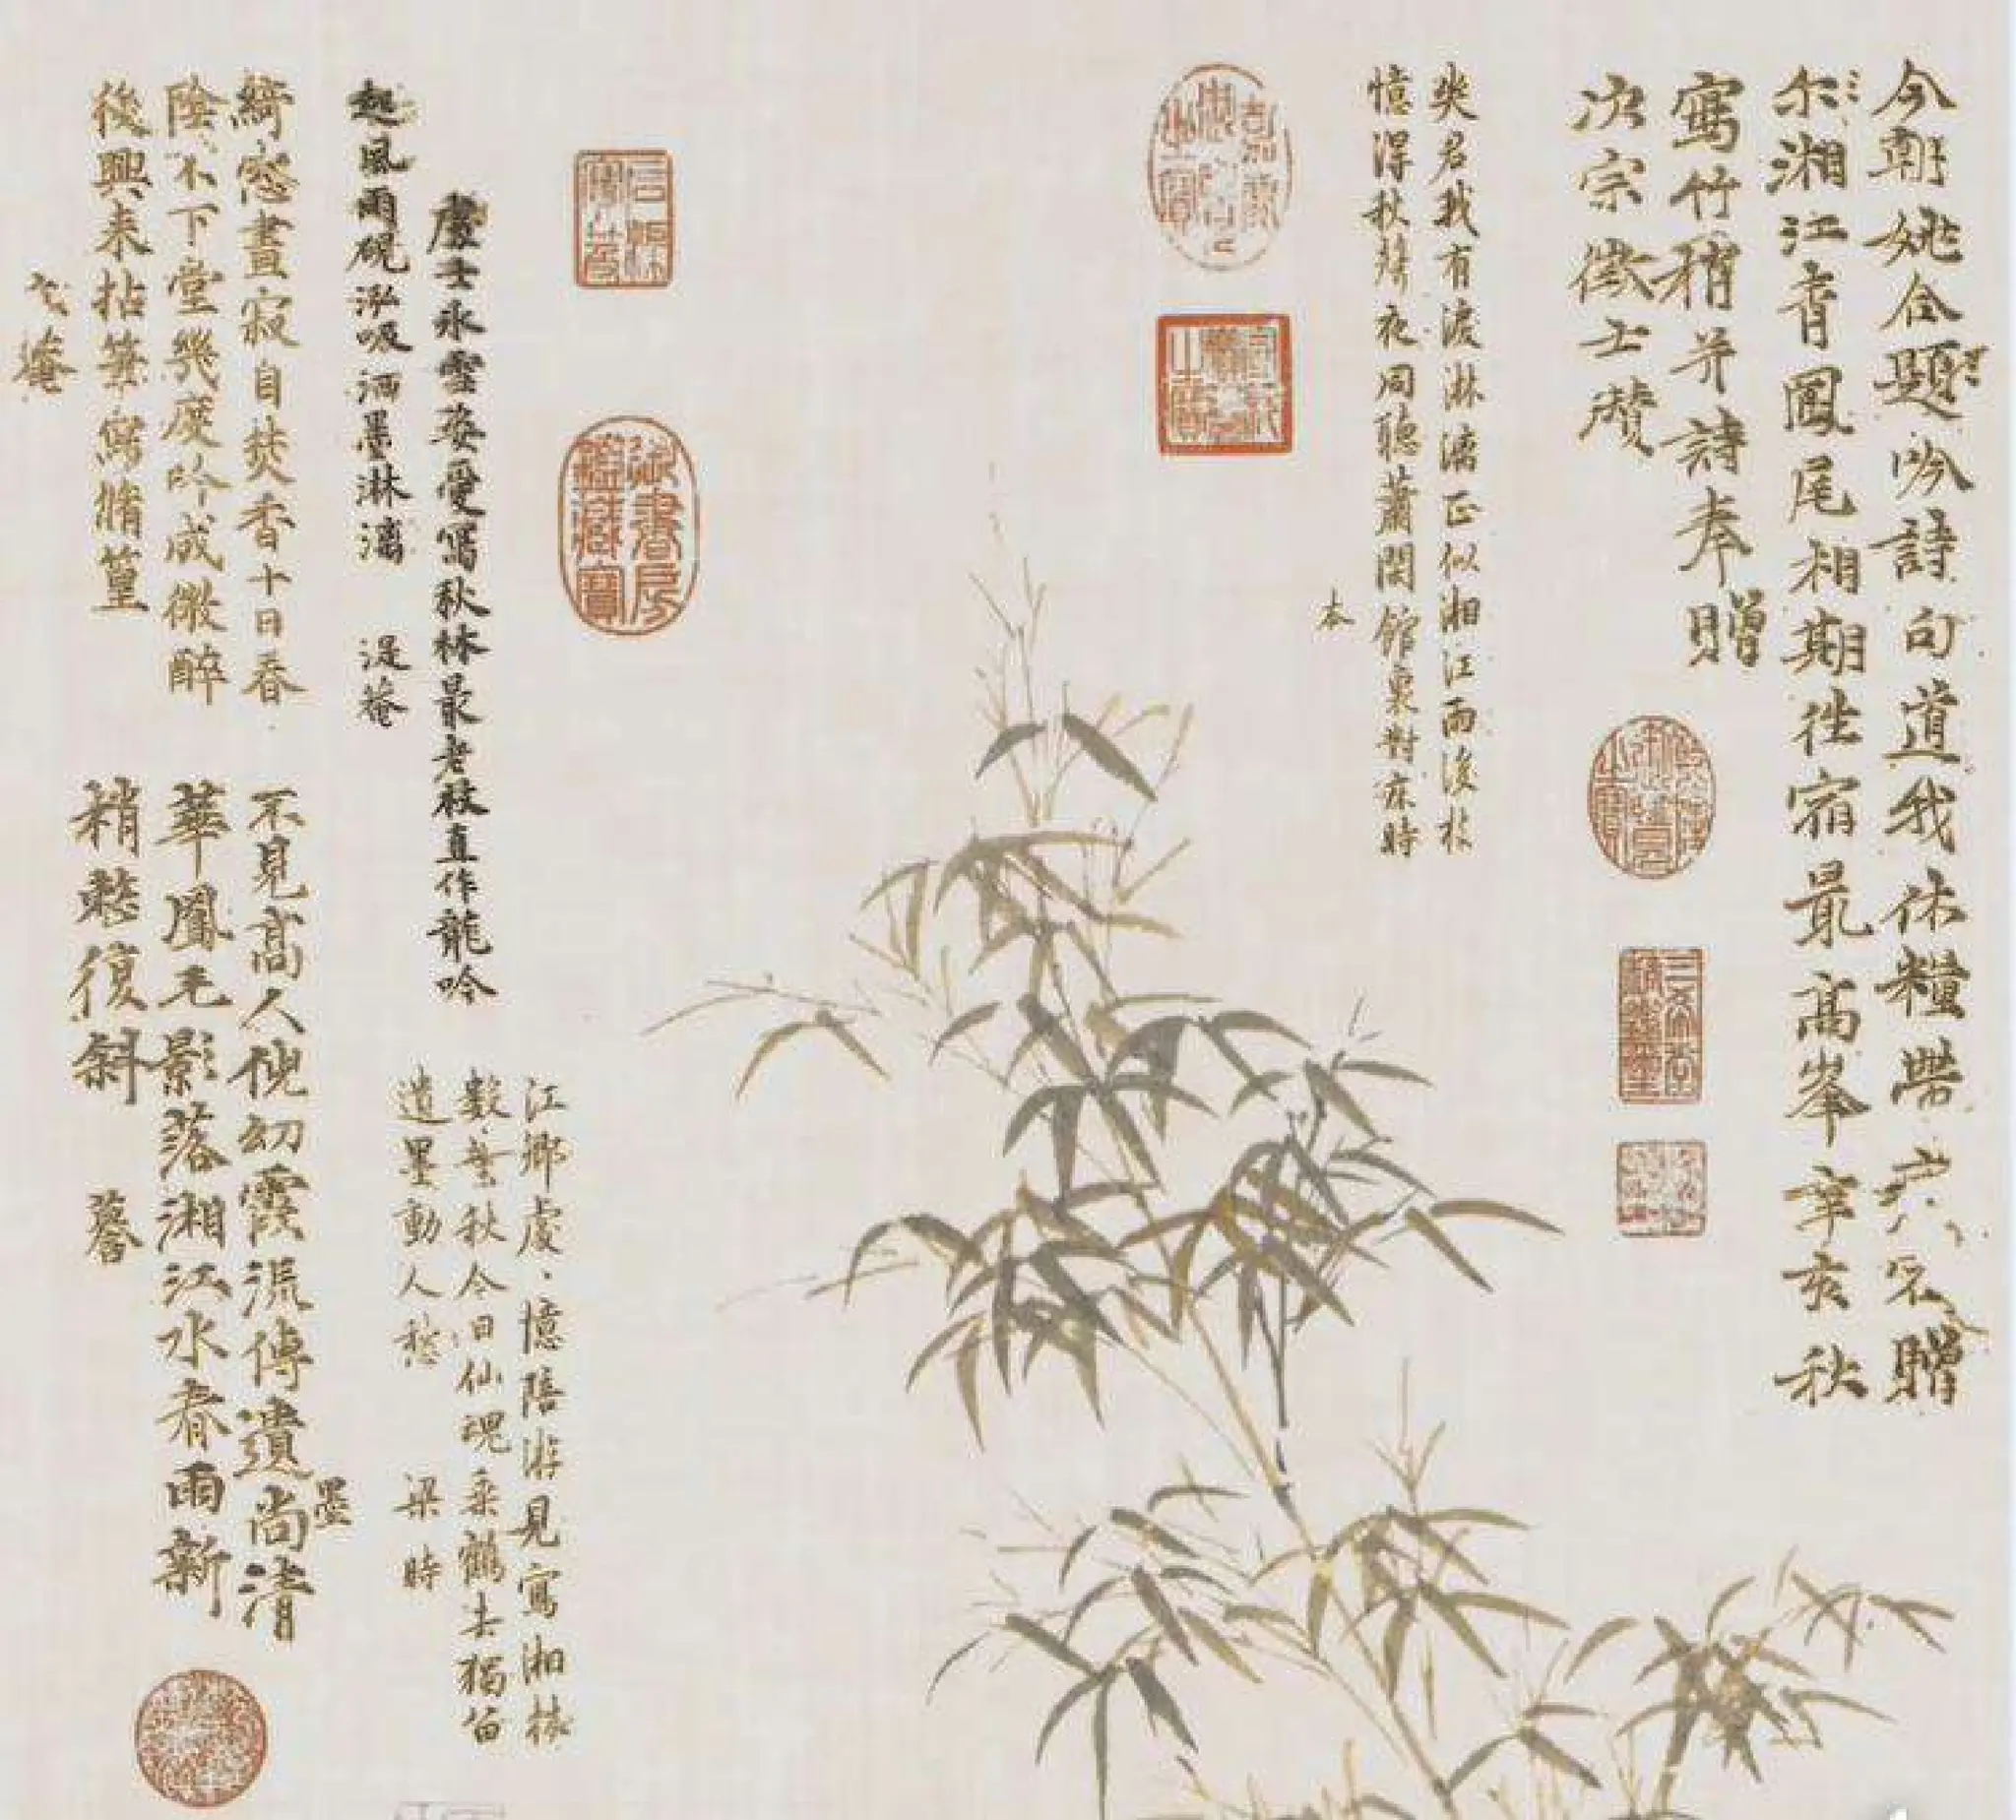 今朝姚合題吟詩句道我休糧帶
贈
尔湘江青鳳尾相期往宿最高峯辛亥秋
寫竹梢并詩奉贈
次宗徵士瓚
爽名我有淚淋漓正似湘江雨後枝
憶得秋聲夜同聽蕭閑館裏對床時
本
處士永雪姿愛寫秋林最老枝直作龍吟
起風雨硯泓吸洒墨淋漓
湜菴
綺窓晝寂自焚香十日春
陰不下堂幾度吟成微醉
後興来拈筆寫脩篁
菴
江鄉處〻憶陪游見寫湘枝
數葉秋今日仙魂乘鶴去獨留
遺墨動人愁
梁時
不見高人倪幻霞流傳遺尚清
墨
華鳳毛影落湘江水春雨新
梢整復斜
謩
御書房鑑藏寶